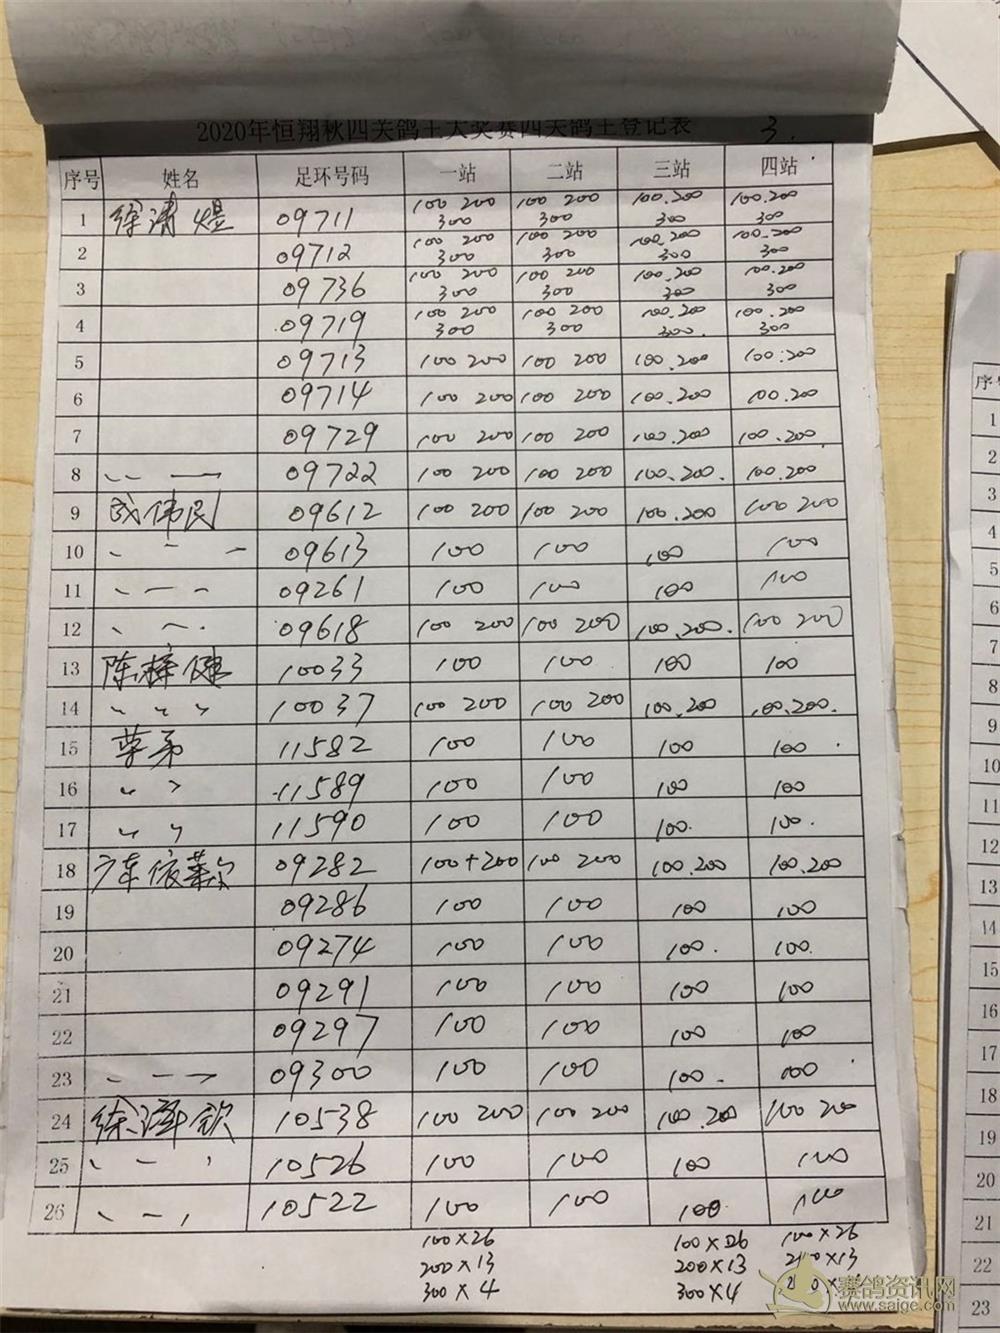 2020年恒翔秋四关鸽王大奖赛四关鸽王登记表 3.
序号 姓名 足环号码 一站 二站 三站 四站
1 徐清煜 09711 100 200 300 100 200 300 100.200 300 100.200 300
2 09712 100 200 300 100 200 300 100.200 300 100.200 300
3 09736 100 200 300 100 200 300 100.200 300 100.200 300
4 09719 100 200 300 100 200 300 100.200 300 100.200 300
5 09713 100 200 100 200 100.200 100.200
6 09714 100 200 100 200 100.200 100.200
7 09729 100 200 100 200 100.200 100.200
8 09722 100 200 100 200 100.200. 100.200
9 成伟民 09612 100 200 100 200 100.200 100 200
10 09613 100 100 100 100
11 09261 100 100 100 100
12 09618 100 200 100 200 100.200. 100 200
13 陈梓健 10033 100 100 100 100
14 10037 100 200 100 200 100.200 100.200.
15 11582 100 100 100 100
16 11589 100 100 100 100
17 11590 100 100 100. 100.
18 广东依莱尔 09282 100+200 100 200 100.200 100.200
19 09286 100 100 100 100
20 09274 100 100 100. 100.
21 09291 100 100 100 100
22 09297 100 100 100 100
23 09300 100 100 100. 100
24 徐泽钦 10538 100 200 100 200 100.200 100 200
25 10526 100 100 100 100
26 10522 100 100 100 100
100×26 100×26 100×26
200×13 200×13 200×13
300×4 300×4
赛鸽资讯网
www.saige.com
序号
1
2
3
4
5
6
7
8
9
10
11
12
13
14
15
16
17
18
19
20
21
22
23